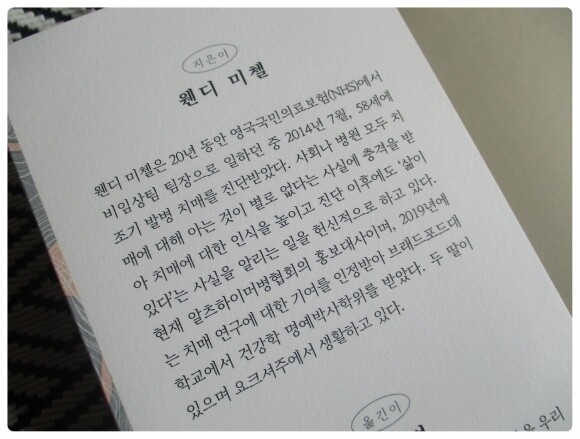 지은이
웬디 미첼
웬디 미첼은 20년 동안 영국국민의료보험(NHS)에서
비임상팀 팀장으로 일하던 중 2014년 7월, 58세에
조기 발병 치매를 진단받았다. 사회나 병원 모두 치
매에 대해 아는 것이 별로 없다는 사실에 충격을 받
아 치매에 대한 인식을 높이고 진단 이후에도 ‘삶이
있다’는 사실을 알리는 일을 헌신적으로 하고 있다.
현재 알츠하이머병협회의 홍보대사이며, 2019년에
는 치매 연구에 대한 기여를 인정받아 브래드포드대
학교에서 건강학 명예박사학위를 받았다. 두 딸이
있으며 요크셔주에서 생활하고 있다.
옮긴이
우리